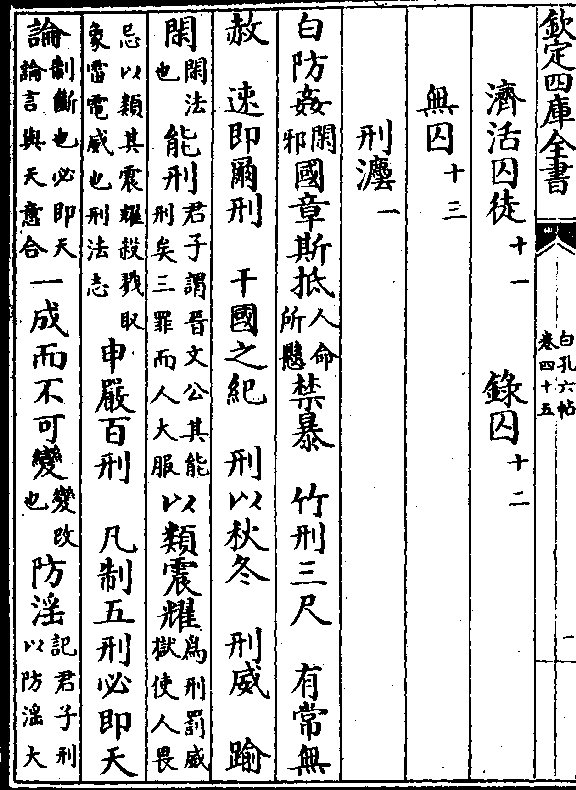 欽定四庫全書
白孔六帖
卷四十五
濟活囚徒十一 錄囚十二
無囚十三
刑灋一
白防姦閑邪國章斯抵人命所懸禁暴 竹刑三尺 有常無
赦 速即爾刑 干國之紀 刑以秋冬 刑威 踰
閑閑法也能刑君子謂晉文公其能刑矣三罪而人大服以類震耀為刑罰威獄使人畏
忌以類其震耀殺戮取象雷電威也刑法志申嚴百刑 凡制五刑必即天
論制斷也必即天論言與天意合一成而不可變變改也防淫記君子刑以防淫大